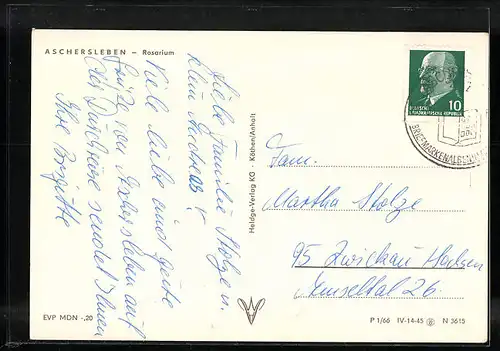 ASCHERSLEBEN – Rosarium
Liebe Familie Stolze u.
klein Andreas!
Viele liebe und gute
Grüße von Aschersleben auf
der Durchreise sendet Ihnen
Ihre Brigitte
EVP MDN -,20
Heldge-Verlag KG · Köthen/Anhalt
DEUTSCHE
DEMOKRATISCHE REPUBLIK
10
BRIEFMARKENALBUM
Fam.
Martha Stolze
95 Zwickau
Amseltal 26.
P 1/66 IV-14-45 N 3615